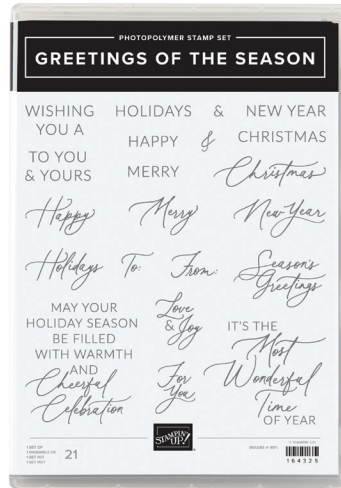 PHOTOPOLYMER STAMP SET
GREETINGS OF THE SEASON
WISHING
YOU A
HOLIDAYS
&
NEW YEAR
HAPPY
&
CHRISTMAS
TO YOU
& YOURS
MERRY
Christmas
Happy
Merry
New Year
Holidays
To:
From:
Season's
Greetings
MAY YOUR
HOLIDAY SEASON
BE FILLED
WITH WARMTH
AND
Cheerful
Celebration
Love
& Joy
For
You
IT'S THE
Most
Wonderful
Time
OF YEAR
STAMPIN' UP!
21
© STAMPIN' UP!
164325